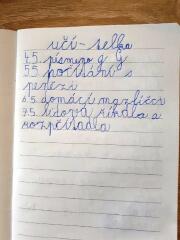 učí-selka
4.5. písmeno g G
5.5. počítání s
penězi
6.5. domácí mazlíčci
7.5. lidová říkala a
rozpočítadla